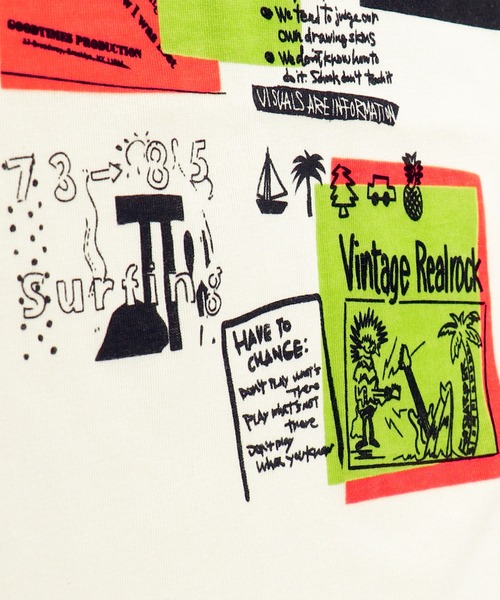 GOODTIMES PRODUCTION
• We tend to judge our
own drawing skills
• We don't know how to
do it. Schools don't teach it
VISUALS ARE INFORMATION
73→85
Surfing
Vintage Realrock
HAVE TO
CHANGE:
DON'T PLAY WHAT'S
There
PLAY WHAT'S NOT
There
Don't play
What you know